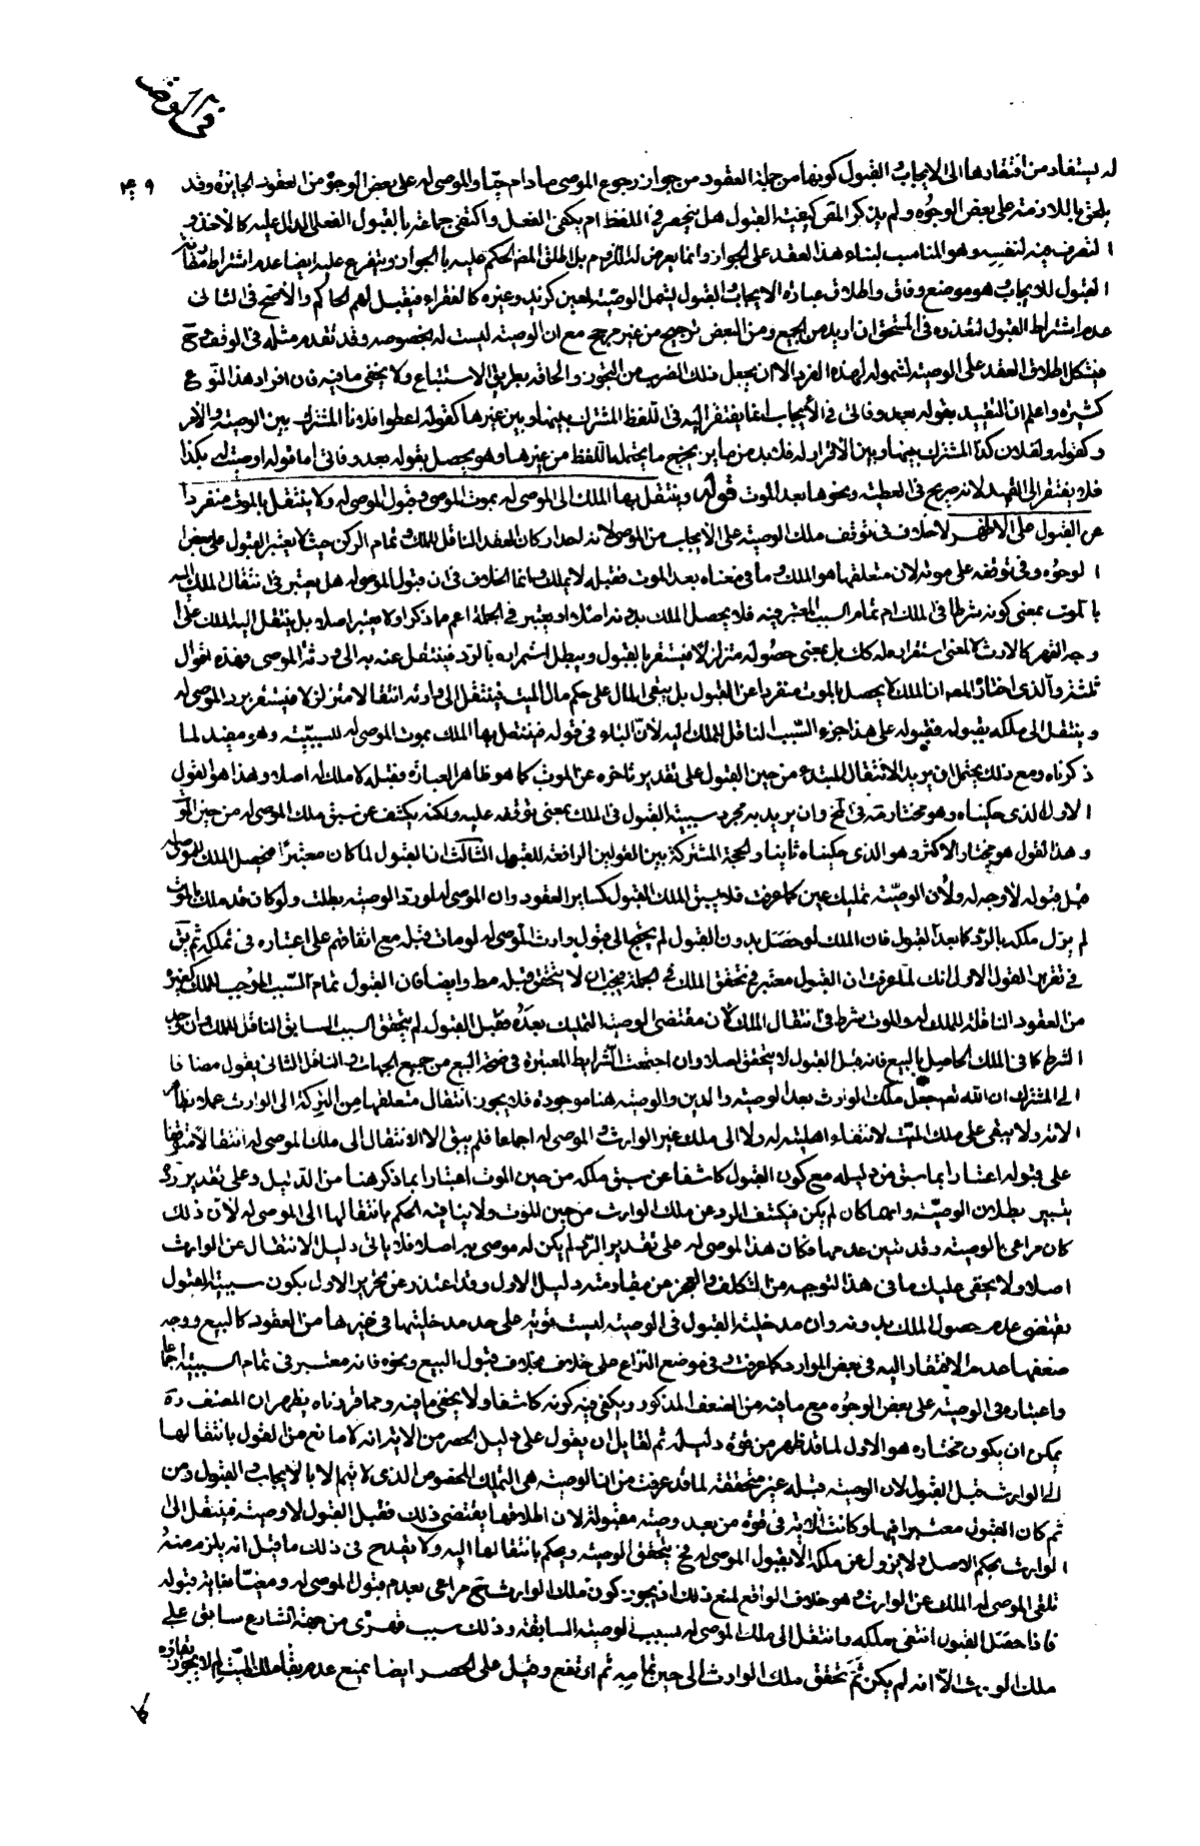 في الوصية
له يستفاد من افتقارها الى الايجاب والقبول كونها من جملة العقود من جواز رجوع الموصي ما دام حيا والموصى له على بعض الوجوه من العقود الجايزة وقد
يلحق باللازمة على بعض الوجوه ولم يذكر المص كيفية القبول هل ينحصر في اللفظ ام يكفي الفعل واكتفى جماعة بالقبول الفعلي الدال عليه كالاخذ و
التصرف فيه لنفسه وهو المناسب لبناء هذا العقد على الجواز وانما يعرض له اللزوم بل اطلق المص الحكم عليه بالجواز ويتفرع عليه ايضا عدم اشتراط مقارنة
القبول للايجاب وهو موضع وفاق واطلاق عبارة الايجاب والقبول يشمل الوصية لمعين كزيد وغيره كالفقراء فيقبل لهم الحاكم والاصح في الثاني
عدم اشتراط القبول لتعذره في المستحق ان اريد من الجميع ومن البعض ترجيح من غير مرجح مع ان الوصية ليست له بخصوصه وقد تقدم مثله في الوقف وح
فيشكل اطلاق العقد على الوصية لشموله لهذا الفرد الا ان يجعل ذلك الضرب من التجوز والحاقه بطريق الاستتباع ولا يخفى ما فيه فان افراد هذا النوع
كثيرة واعلم ان التقييد بقوله بعد وفاتي في الايجاب انما يفتقر اليه في اللفظ المشترك بينها وبين غيرها كقوله اعطوا فلانا المشترك بين الوصية والامر
وكقوله ولفلان كذا المشترك بينها وبين الاقرار له فلا بد من مايز يخرج ما يحتملها اللفظ من غيرها وهو يحصل بقوله بعد وفاتي اما قوله اوصيت له بكذا
فلا يفتقر الى القيد لانه صريح في العطية ونحوها بعد الموت قوله وينتقل بها الملك الى الموصى له بموت الموصي وقبول الموصى له ولا ينتقل بالموت منفردا
عن القبول على الاظهر لا خلاف في توقف ملك الوصية على الايجاب من الموصي لانه احد اركان العقد الناقل للملك او تمام الركن حيث لا يعتبر القبول على بعض
الوجوه وفي توقفه على موته لان متعلقها هو الملك وما في معناه بعد الموت فقبله لا يملك وانما الخلاف في ان قبول الموصى له هل يعتبر في انتقال الملك اليه
بالموت بمعنى كونه شرطا في الملك ام تمام السبب المعتبر فيه فلا يحصل الملك بدونه اصلا او يعتبر في الجملة اعم ما ذكر او لا يعتبر اصلا بل ينتقل اليه الملك على
وجه القهر كالارث لا بمعنى استقراره له كك بل بمعنى حصوله متزلزلا فيستقر بالقبول ويبطل استمراره بالرد فينتقل عنه به الى ورثة الموصي فهذه اقوال
ثلثة والذي اختاره المص ان الملك لا يحصل بالموت منفردا عن القبول بل يبقى المال على حكم مال الميت فينتقل الى وارثه انتقالا متزلزلا فيستقر برد الموصى له
وينتقل الى ملكه بقبوله فقبوله على هذا جزء السبب الناقل للملك اليه لان الباء في قوله فينتقل بها الملك بموت الموصى له للسببية وهو مفيد لما
ذكرناه ومع ذلك يحتمل ان يريد الانتقال المبتدء من حين القبول على تقدير تاخره عن الموت كما هو ظاهر العبارة فقبله لا ملك له اصلا وهذا هو القول
الاول الذي حكيناه وهو مختاره في وان يريد به مجرد سببية القبول في الملك بمعنى توقفه عليه ولكنه يكشف عن سبق ملك الموصى له من حين الموت
وهذا القول هو مختار الاكثر وهو الذي حكيناه ثانيا والحجة المشتركة بين القولين الرافعة للقول الثالث ان القبول لما كان معتبرا فحصل الملك للموصى له
قبل قبوله لا وجه له ولان الوصية تمليك عين كما عرفت فلا يسبق الملك القبول كسائر العقود وان الموصى له لو رد الوصية بطلت ولو كان قد ملك بالموت
لم يزل ملكه بالرد كما بعد القبول فان الملك لو حصل بدون القبول لم يحتج الى قبول وارث الموصى له لو مات قبله مع اتفاقهم على اعتباره في تملكه ثم يبقى
في تقرير القول الاول انك لما عرفت ان القبول معتبر في تحقق الملك في الجملة فيجب ان لا يتحقق قبله مط وايضا فان القبول تمام السبب الموجب للملك كغيره
من العقود الناقلة للملك له والموت شرط في انتقال الملك لان مقتضى الوصية التمليك بعده فقبل القبول لم يتحقق السبب السابق الناقل للملك وان وجد
الشرط كما في الملك الحاصل بالبيع فانه قبل القبول لا يتحقق اصلا وان اجتمعت الشرايط المعتبرة في صحة البيع من جميع الجهات والثاني يقول مضافا
الى المشترك ان الله تعالى جعل ملك الوارث بعد الوصية والدين والوصية هنا موجودة فلا يجوز انتقال متعلقها من التركة الى الوارث عملا بظاهر
الاية ولا يبقى على ملك الميت لانتفاء اهليته له ولا الى ملك غير الوارث والموصى له اجماعا فلم يبق الا الانتقال الى ملك الموصى له انتقالا موقوفا
على قبوله اعتبارا بما سبق من دليله مع كون القبول كاشفا عن سبق ملكه من حين الموت اعتبارا بما ذكر هنا من الدليل وعلى تقدير رده
يتبين بطلان الوصية وانها كان لم يكن فيكشف الرد عن ملك الوارث من حين الموت ولا ينافيه الحكم بانتقالها الى الموصى له لان ذلك
كان مراعى بالوصية وقد تبين عدمها فكان هذا الموصى له على تقدير الرد لم يكن له موصى به اصلا فلا ياتي دليل الانتقال عن الوارث
اصلا ولا يخفى عليك ما في هذا التوجيه من التكلف والعجز من مقاومته دليل الاول وقد اعتذر عن تحرير الاول بكون سببية القبول
يقتضي عدم حصول الملك بدونه وان مدخلية القبول في الوصية ليست قوية على حد مدخليتها في غيرها من العقود كالبيع ووجه
ضعفها عدم الافتقار اليه في بعض الموارد كما عرفت وفي موضع النزاع على خلاف بخلاف قبول البيع ونحوه فانه معتبر في تمام السببية اجماعا
واعتباره في الوصية على بعض الوجوه مع ما فيه من الضعف المذكور ويكفي فيه كونه كاشفا ولا يخفى ما فيه ومما قررناه يظهر ان المصنف ره
يمكن ان يكون مختاره هو الاول لما قد ظهر من قوة دليله ثم لقايل ان يقول على دليل الحصر من الاية انه لا مانع من القول بانتقالها
الى الوارث قبل القبول لان الوصية قبله غير متحققة لما قد عرفت من ان الوصية هي التمليك المخصوص الذي لا يتم الا بالايجاب والقبول ومن
ثم كان القبول معتبرا فيها وكانت الاية في قوة من بعد وصية مقبولة لان اطلاقها يقتضي ذلك فقبل القبول لا وصية فينتقل الى
الوارث بحكم الاصل ولا يزول عن ملكه الا بقبول الموصى له فح يتحقق الوصية ويحكم بانتقالها اليه ولا يقدح في ذلك ما قيل انه يلزم منه
تلقي الموصى له الملك عن الوارث وهو خلاف الواقع لمنع ذلك اذ يجوز كون ملك الوارث ح مراعى بعدم قبول الموصى له ومغيا بغاية قبوله
فاذا حصل القبول انتفى ملكه وانتقل الى ملك الموصى له بسبب الوصية السابقة وذلك سبب قهري من جهة الشارع سابق على
ملك الوارث الا انه لم يكن ثم تحقق ملك الوارث الى حين تمامه ثم ارتفع وقيل على الحصر ايضا بمنع عدم بقاء ملك الميت لم لا يجوز بقاؤه